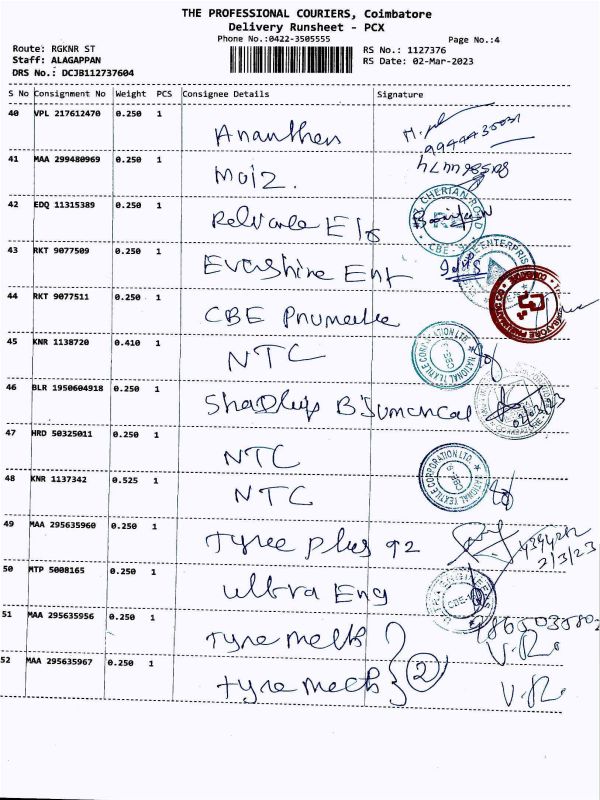 THE PROFESSIONAL COURIERS, Coimbatore
Delivery Runsheet - PCX
Phone No.:0422-3505555
Page No.:4
Route: RGKNR ST
RS No.: 1127376
Staff: ALAGAPPAN
RS Date: 02-Mar-2023
DRS No.: DCJB112737604
S No Consignment No Weight PCS Consignee Details Signature
40 VPL 217612470 0.250 1 Ananthen 9944430031
41 MAA 299480969 0.250 1 Moiz.
42 EDQ 11315389 0.250 1
43 RKT 9077509 0.250 1 Evershine Ent
44 RKT 9077511 0.250 1 CBE
45 KNR 1138720 0.410 1 NTC
46 BLR 1950604918 0.250 1 02/03/23
47 HRD 50325011 0.250 1 NTC
48 KNR 1137342 0.525 1 NTC
49 MAA 295635960 0.250 1 Tyree plus 92 2/3/23
50 MTP 5008165 0.250 1 Ultra Eng
51 MAA 295635956 0.250 1 Tyre meeb V.R.
52 MAA 295635967 0.250 1 Tyre meeb 2 V.R.